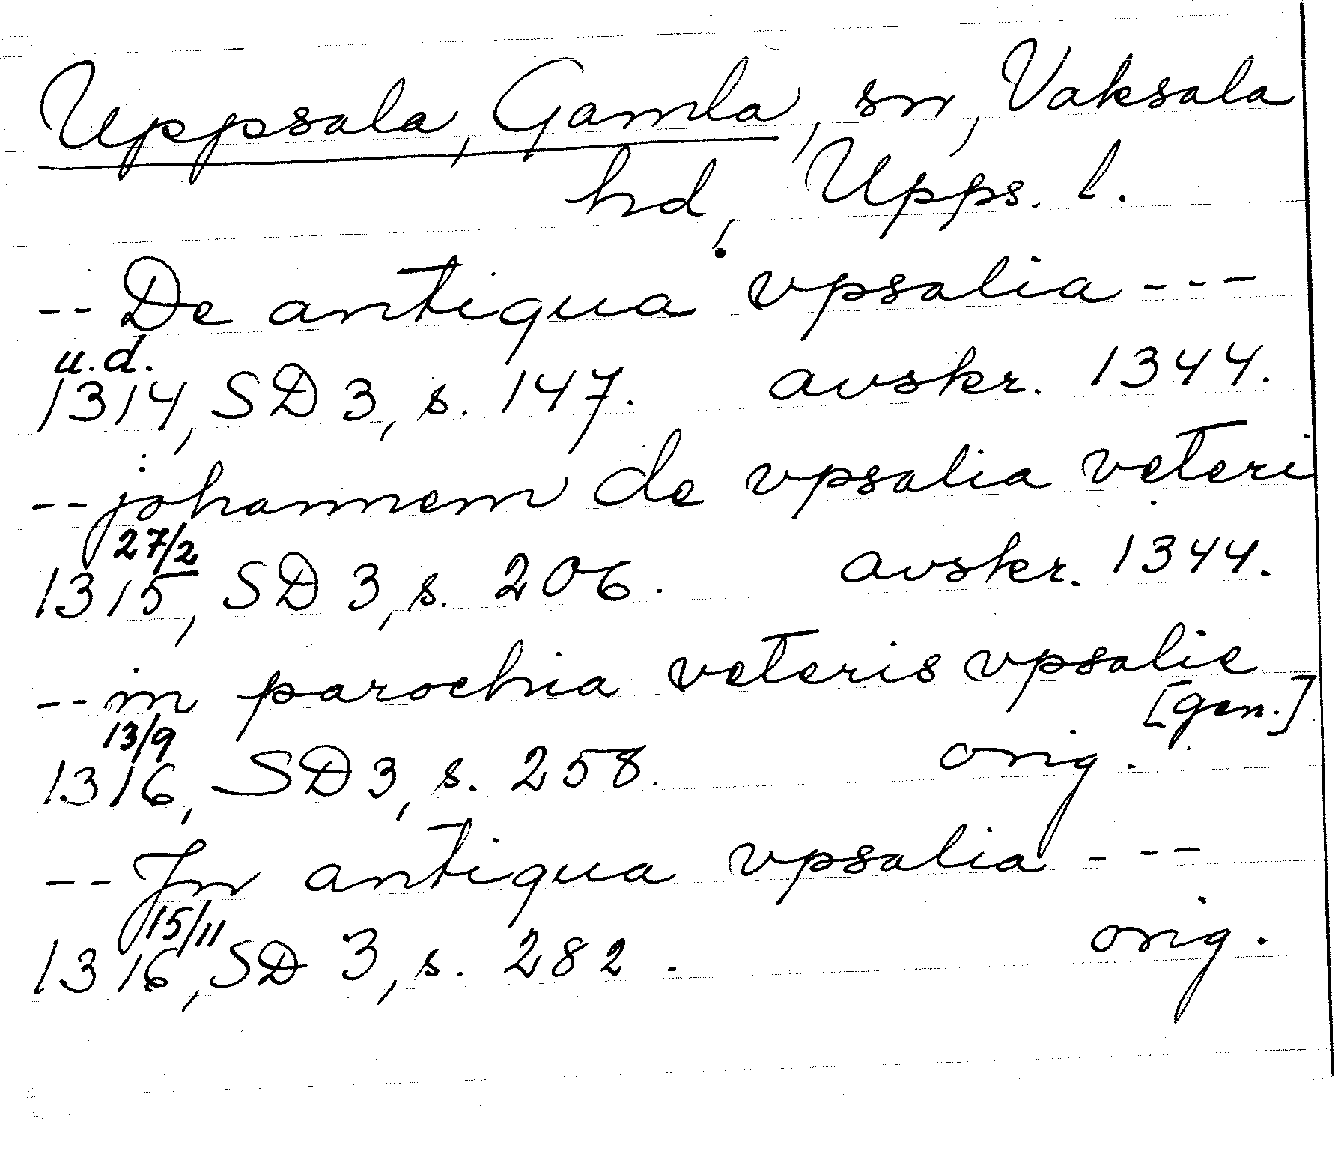 Uppsala, Gamla, sn, Vaksala
hd, Upps. l.
-- De antiqua vpsalia ---
u.d.
1314, SD 3, s. 147. avskr. 1344.
-- johannem de vpsalia veteri
27/2
1315, SD 3, s. 206. avskr. 1344.
-- in parochia veteris vpsalie
[gen.]
13/9
1316, SD 3, s. 258. orig.
-- In antiqua vpsalia ---
15/11
1316, SD 3, s. 282. orig.